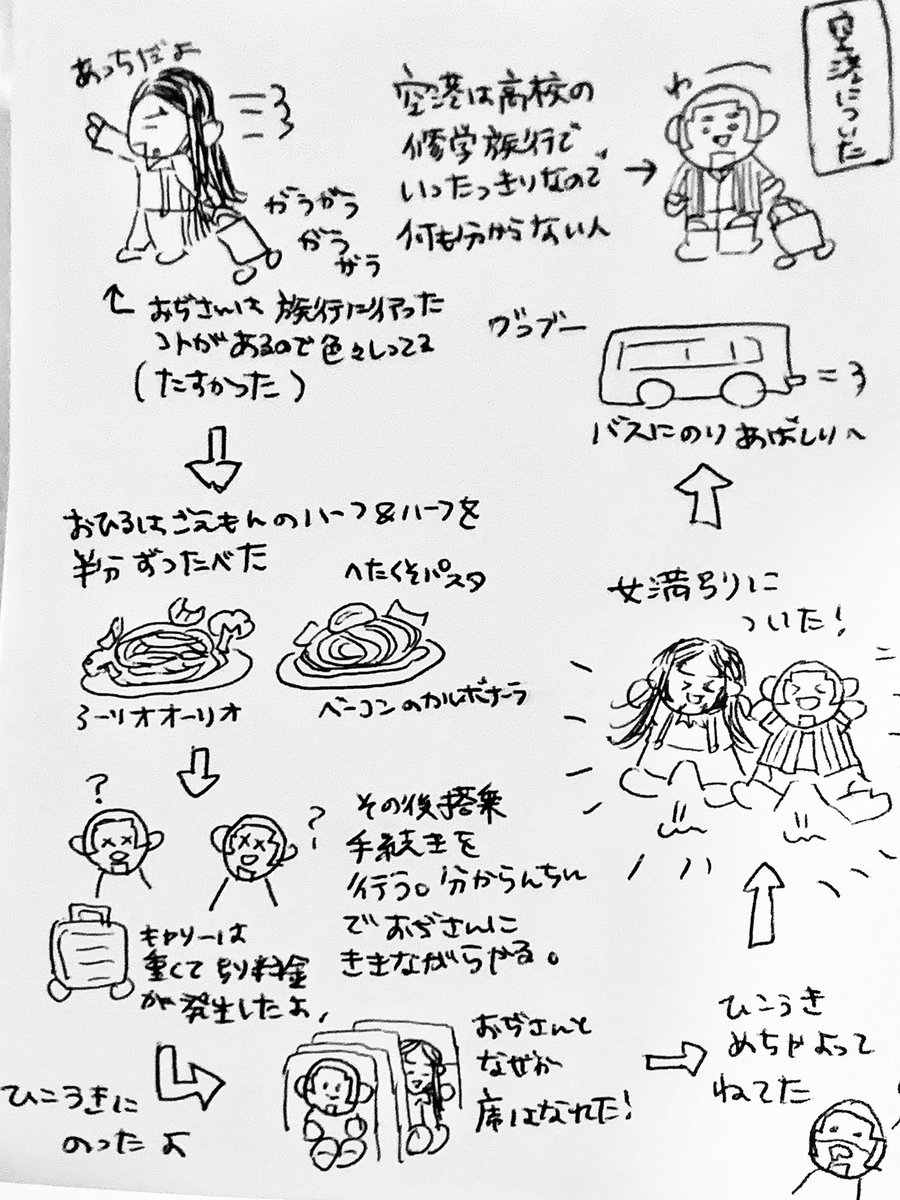 空港についた
わ
空港は高校の
修学旅行で
いったっきりなので
何も分からない人
あっちだよ
がらがら
がら
がら
おぢさんは旅行に行った
コトがあるので色々しってる
(たすかった)
おひるはごえもんのハーフ&ハーフを
半分ずつたべた
へたくそパスタ
ペーコンのカルボナーラ
その後搭乗
手続きを
行う。分からんちん
でおぢさんに
ききながらやる。
?
?
キャリーは
重くて別料金
が発生したよ、
ひこうきに
のったよ
おぢさんと
なぜか
席はなれた!
ひこうき
めちゃよって
ねてた
女満別に
ついた!
バスにのりあばしりへ
ブンブー